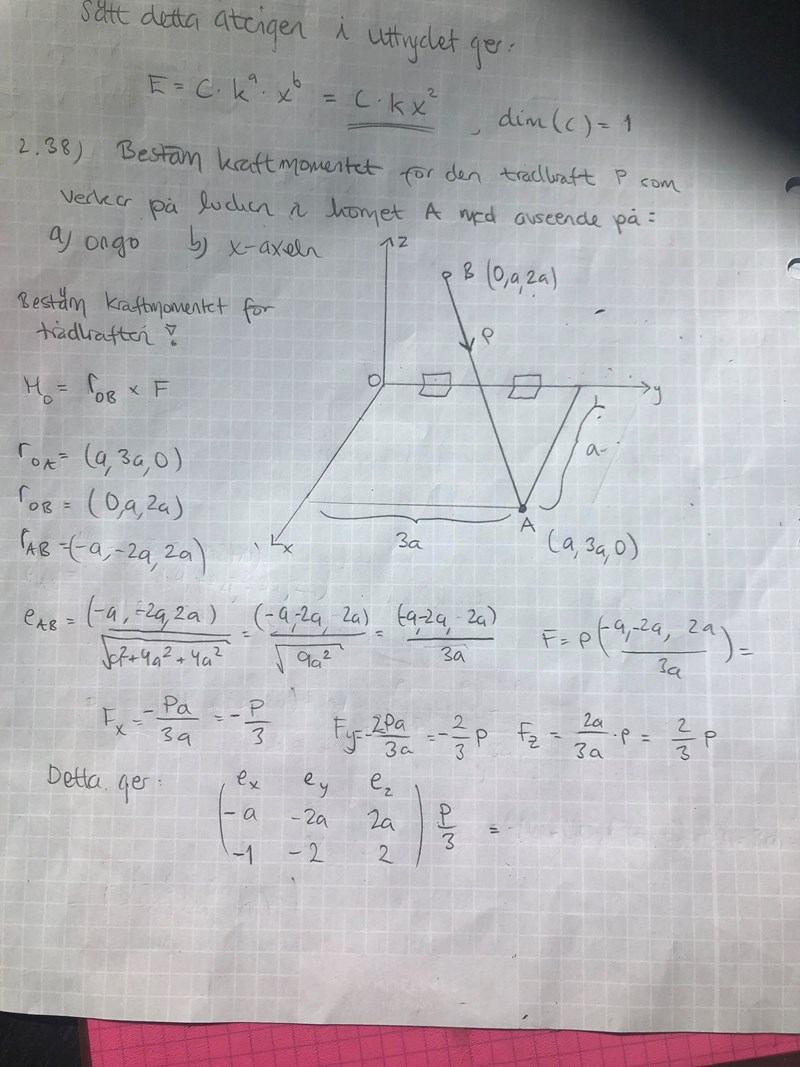 Sätt detta återigen i uttrycket ger:
E = C · k^a · x^b = C · kx^2 , dim(c) = 1
2.38) Bestäm kraftmomentet för den trådkraft P som
verkar på luckan i hörnet A med avseende på:
a) origo b) x-axeln
z
B (0,a,2a)
Bestäm kraftmomentet för
trådkraften!
P
M_O = r_OB × F
O
y
a
r_OA = (a, 3a, 0)
r_OB = (0,a,2a)
r_AB = (-a, -2a, 2a)
x
3a
A
(a, 3a, 0)
e_AB = (-a, -2a, 2a) / √(a^2+4a^2+4a^2) = (-a,-2a, 2a) / √(9a^2) = (-a-2a, 2a) / 3a F = P(-a,-2a, 2a / 3a) =
F_x = -Pa/3a = -P/3 F_y = -2Pa/3a = -2/3 P F_z = 2a/3a · P = 2/3 P
Detta ger:
e_x e_y e_z
-a -2a 2a P/3 =
-1 -2 2